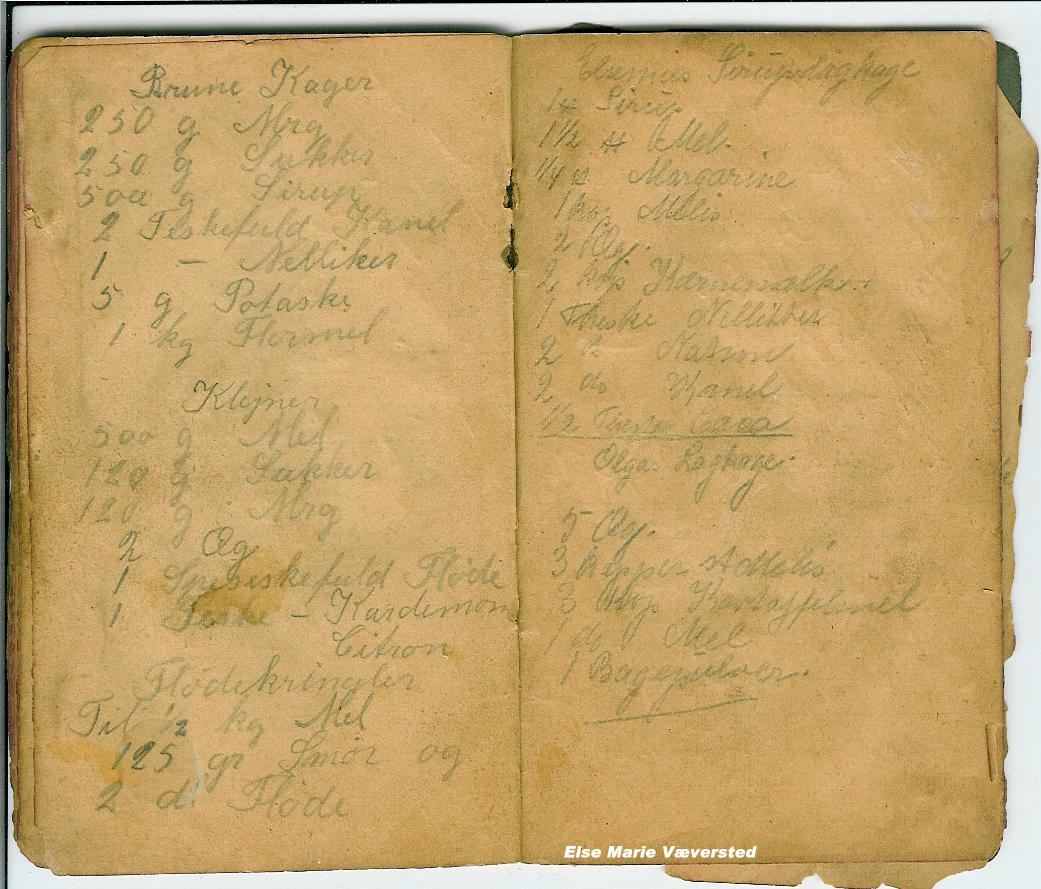 Brune Kager
250 g Mrg
250 g Sukker
500 g Sirup
2 Teskefuld Kanel
1 — Nelliker
5 g Potaske
1 kg Flormel
Klejner
500 g Mel
120 g Sukker
120 g Mrg
2 Æg
1 Spesiskefuld Fløde
1 Teske – Kardemom
Citron
Flödekringler
Til ½ kg Mel
125 gr Smör og
2 dl Flöde
Sirupslagkage
1 ℔ Sirup
1½ ℔ Mel.
¼ ℔ Margarine
1 kop Melis
2 Æg.
2 kop Kærnemælk
1 Theske Nelliker
2 do Natron
2 do Kanel
½ Theske Cacao
Olgas Lagkage.
5 Æg.
3 kopper st Melis
3 kop Kartoffelmel
1 do Mel
1 Bagepulver.
Else Marie Væversted